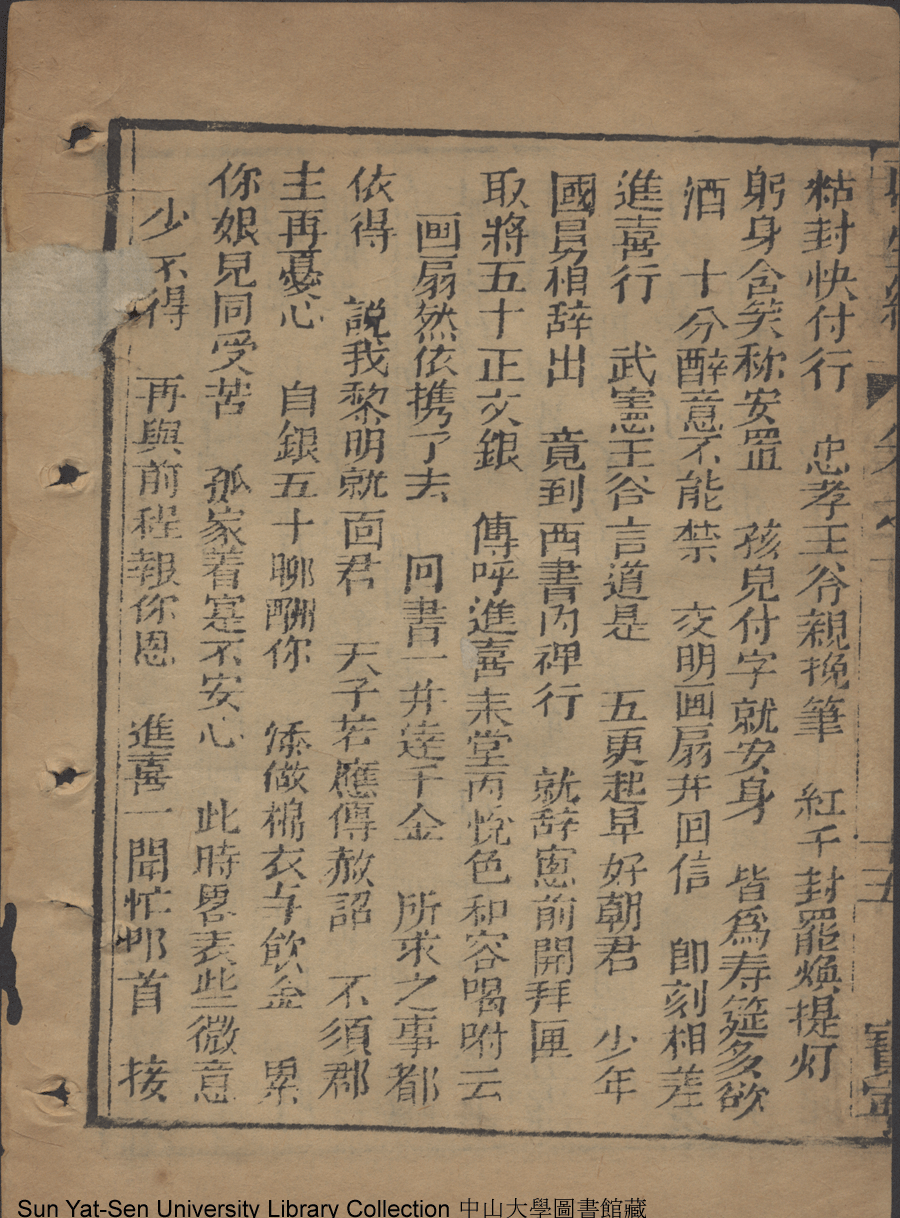 粘封快付行 忠孝王谷親挽筆 紅千封罷煥提灯
躬身含笑称安置 孩兒付字就安身 皆為寿筵多欲
酒 十分醉意不能禁 交明画扇并回信 即刻相差
進喜行 武憲王谷言道是 五更起早好朝君 少年
國舅相辞出 竟到西書内裡行 就辞窻前開拜匣
取將五十正文銀 傳呼進喜来堂丙 悅色和容喝咐云
画扇然依携了去 回書一并達千金 所求之事都
依得 説我黎明就面君 天子若應傳赦詔 不須郡
主再憂心 自銀五十聊酬你 添做棉衣与飲金 累
你娘兒同受苦 孤家着寔不安心 此時畧表些微意
少不得 再與前程報你恩 進喜一聞忙叩首 接
十五
Sun Yat-Sen University Library Collection 中山大學圖書館藏